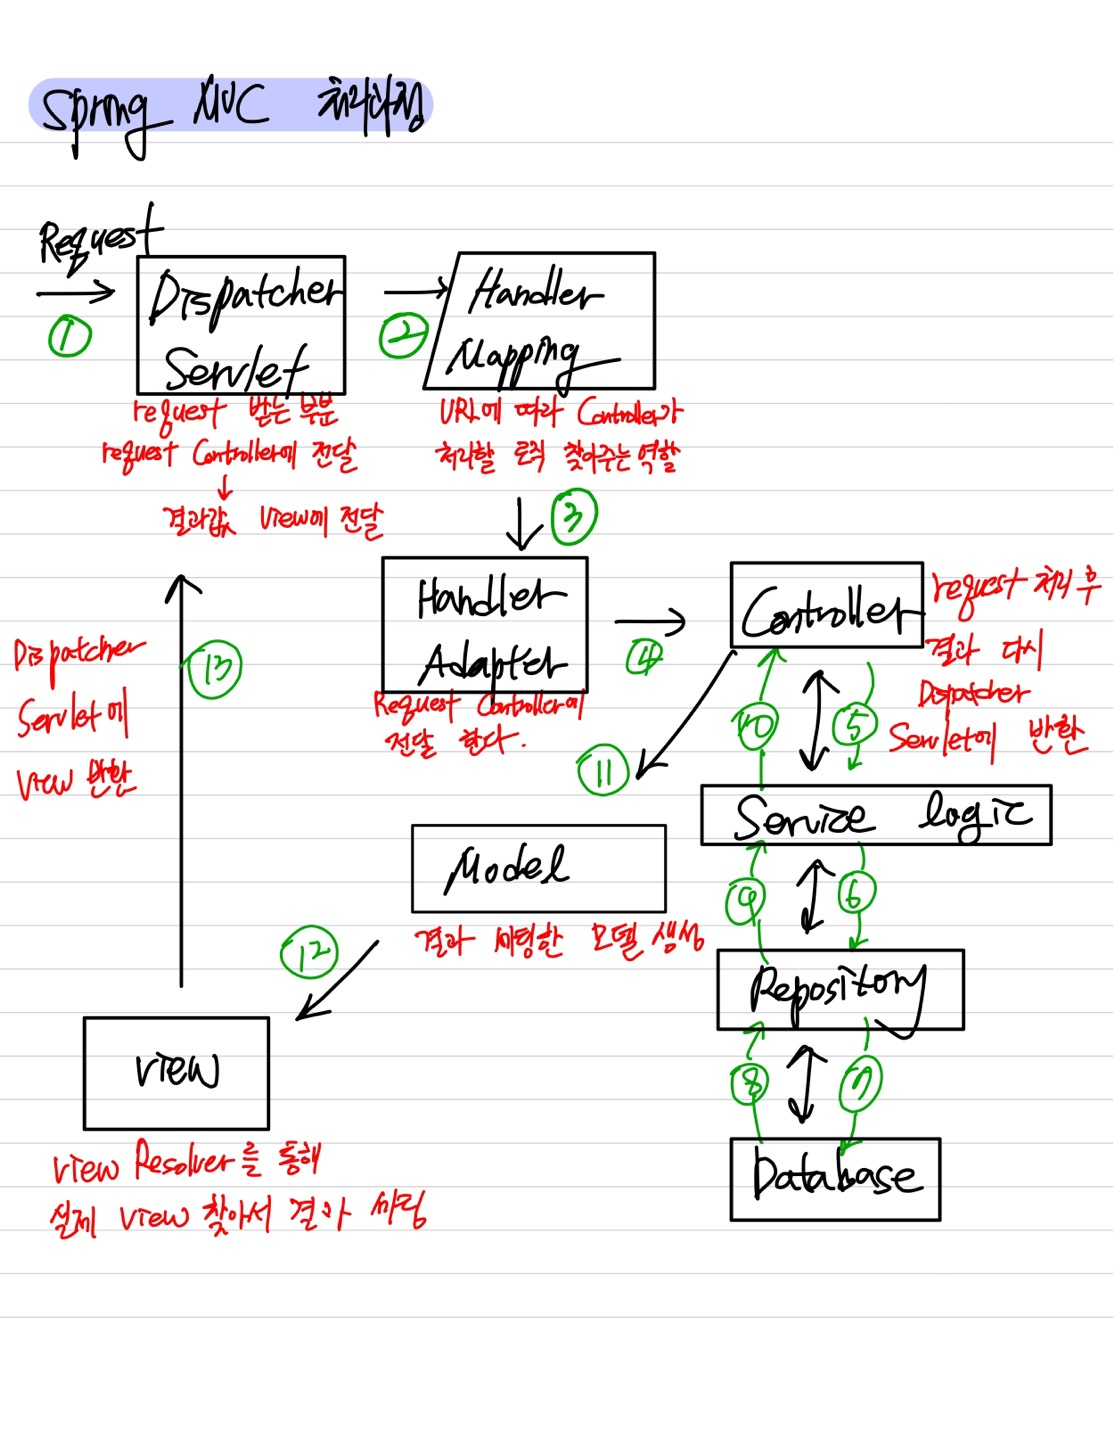 Spring MVC 처리과정
Request
①
Dispatcher
Servlet
②
Handler
Mapping
request 받는 부분
request Controller에 전달
↓
결과값 View에 전달
URL에 따라 Controller가
처리할 로직 찾아주는 역할
③
Handler
Adapter
Request Controller에
전달 한다.
④
Controller
request 처리 후
결과 다시
Dispatcher
Servlet에 반환
⑩
⑤
⑪
Service logic
⑨
⑥
Repository
⑧
⑦
Database
Model
결과 세팅한 모델 생성
⑫
view
view Resolver를 통해
실제 view 찾아서 결과 세팅
⑬
Dispatcher
Servlet에
view 반환